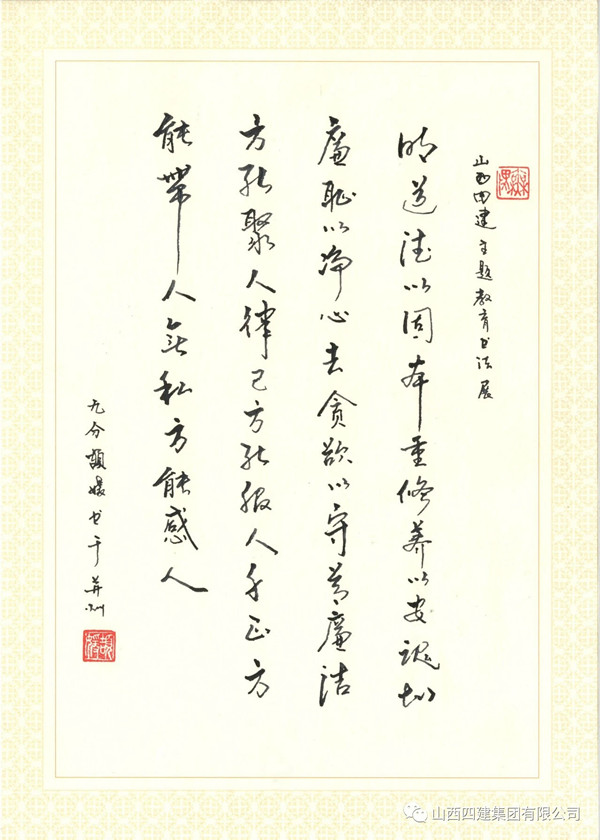 山西四建主题教育书法展
明道德以固本重修养以安魂知
廉耻以净心去贪欲以守节廉洁
方能聚人律己方能服人身正方
能带人无私方能感人
九分颉媛书于并州
山西四建集团有限公司